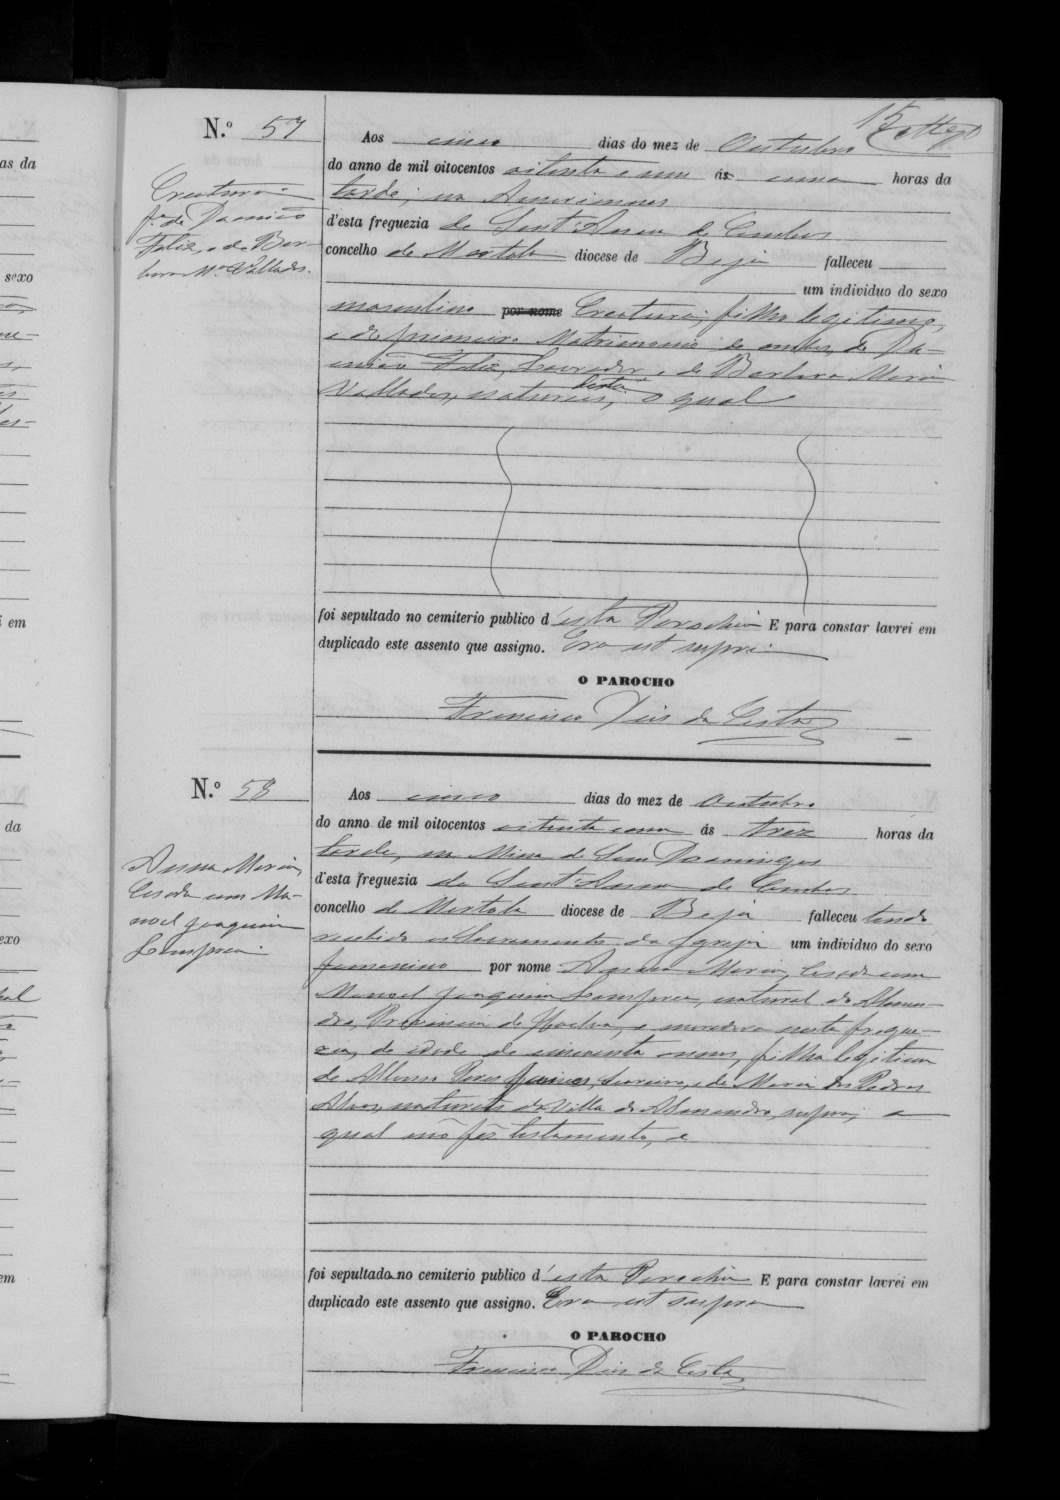 15
N.º 57
Aos cinco dias do mez de Outubro
do anno de mil oitocentos oitenta e um ás uma horas da
tarde, na
d'esta freguezia de Sant'Anna de Cambas
concelho de Mertola diocese de Beja falleceu
um individuo do sexo
masculino por nome Creatura, filho legitimo,
e do primeiro Matrimonio de ambos, de Da-
mião Felix, Lavrador, e de Barbara Maria
Valladas, naturaes, desta o qual
Creatura
f.º de Damião
Felix, e de Bar-
bara M.ª Valladas.
foi sepultado no cemiterio publico d'esta Parochia E para constar lavrei em
duplicado este assento que assigno. Era ut supra
O PAROCHO
Francisco Dias da Costa
N.º 58
Aos cinco dias do mez de Outubro
do anno de mil oitocentos oitenta e um ás trez horas da
tarde, na Mina de Sam Domingos
d'esta freguezia de Sant'Anna de Cambas
concelho de Mertola diocese de Beja falleceu tendo
recebido os Sacramentos da Igreja um individuo do sexo
femenino por nome Anna Maria, Casada com
Manoel Joaquim natural de
Provincia de Huelva, e moradora nesta fregue-
zia, de idade de cincoenta annos, filha legitima
de e de Maria
naturaes da Villa de supra, a
qual não fez testamento, e
Anna Maria,
Casada com Ma-
noel Joaquim
foi sepultado no cemiterio publico d'esta Parochia E para constar lavrei em
duplicado este assento que assigno. Era ut supra
O PAROCHO
Francisco Dias da Costa